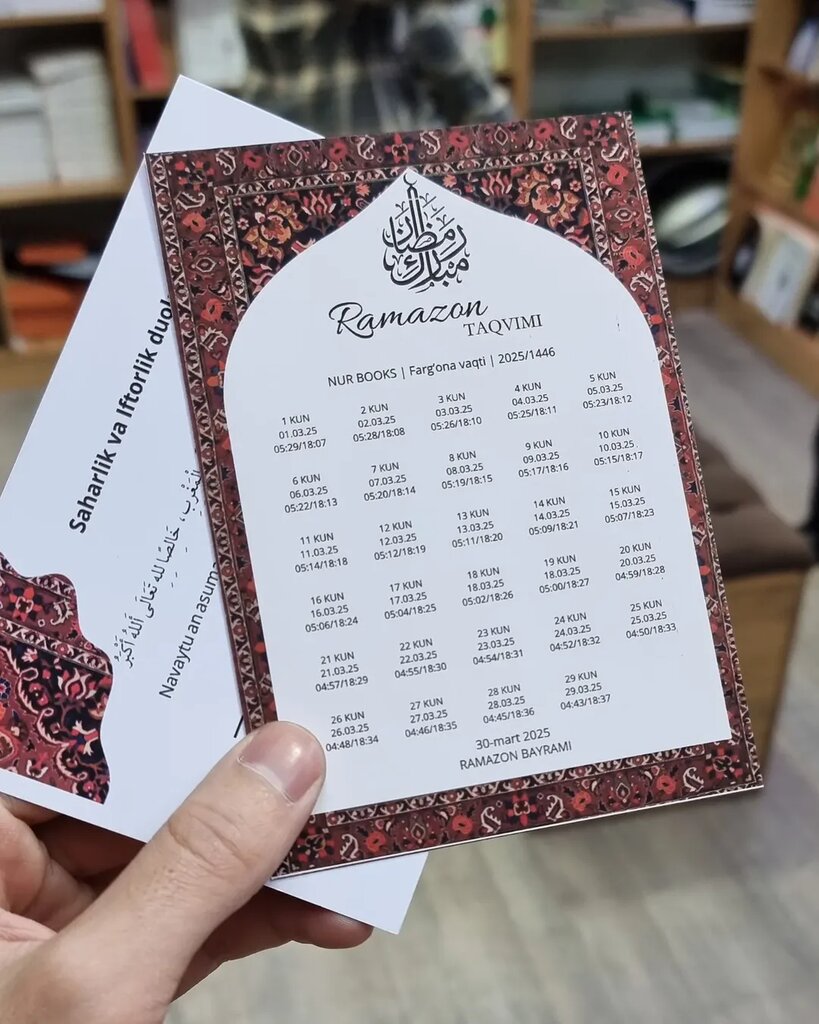 رمضان
مبارك
Ramazon
TAQVIMI
NUR BOOKS | Farg'ona vaqti | 2025/1446
1 KUN 2 KUN 3 KUN 4 KUN 5 KUN
01.03.25 02.03.25 03.03.25 04.03.25 05.03.25
05:29/18:07 05:28/18:08 05:26/18:10 05:25/18:11 05:23/18:12
6 KUN 7 KUN 8 KUN 9 KUN 10 KUN
06.03.25 07.03.25 08.03.25 09.03.25 10.03.25
05:22/18:13 05:20/18:14 05:19/18:15 05:17/18:16 05:15/18:17
11 KUN 12 KUN 13 KUN 14 KUN 15 KUN
11.03.25 12.03.25 13.03.25 14.03.25 15.03.25
05:14/18:18 05:12/18:19 05:11/18:20 05:09/18:21 05:07/18:23
16 KUN 17 KUN 18 KUN 19 KUN 20 KUN
16.03.25 17.03.25 18.03.25 18.03.25 20.03.25
05:06/18:24 05:04/18:25 05:02/18:26 05:00/18:27 04:59/18:28
21 KUN 22 KUN 23 KUN 24 KUN 25 KUN
21.03.25 22.03.25 23.03.25 24.03.25 25.03.25
04:57/18:29 04:55/18:30 04:54/18:31 04:52/18:32 04:50/18:33
26 KUN 27 KUN 28 KUN 29 KUN
26.03.25 27.03.25 28.03.25 29.03.25
04:48/18:34 04:46/18:35 04:45/18:36 04:43/18:37
30-mart 2025
RAMAZON BAYRAMI
Saharlik va Iftorlik duol
الْمَغْرِبِ، خَالِصًا لله تَعَالَى اَللهُ أَكْبَرُ
Navaytu an asuma